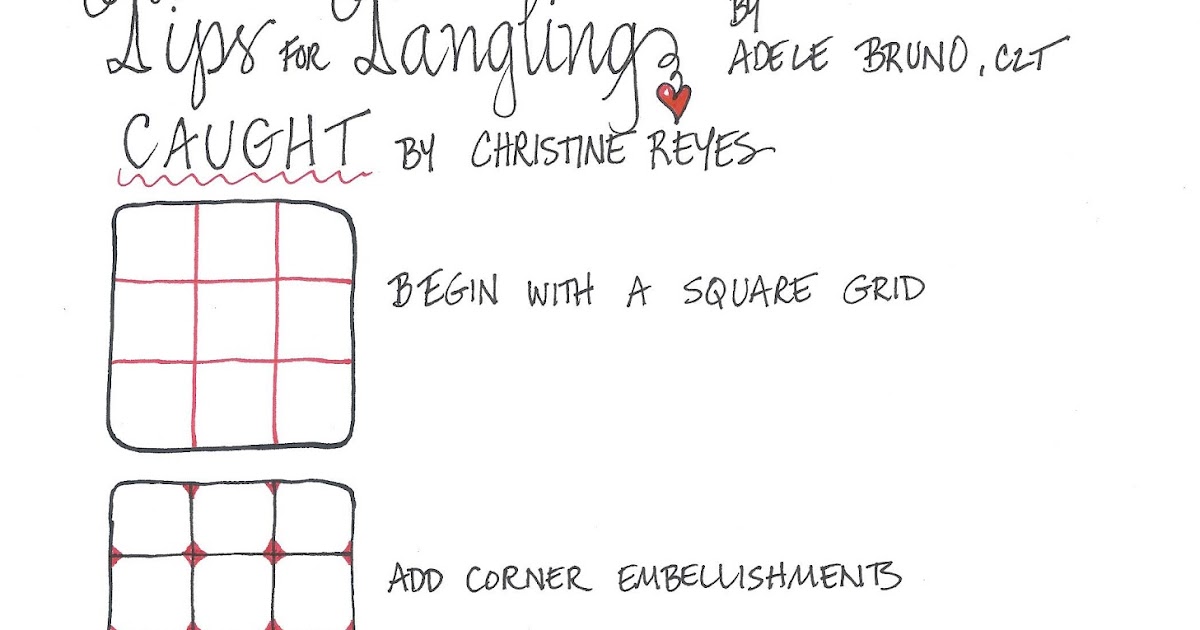 Tips FOR Tangling BY
ADELE BRUNO, CZT
CAUGHT BY CHRISTINE REYES
BEGIN WITH A SQUARE GRID
ADD CORNER EMBELLISHMENTS